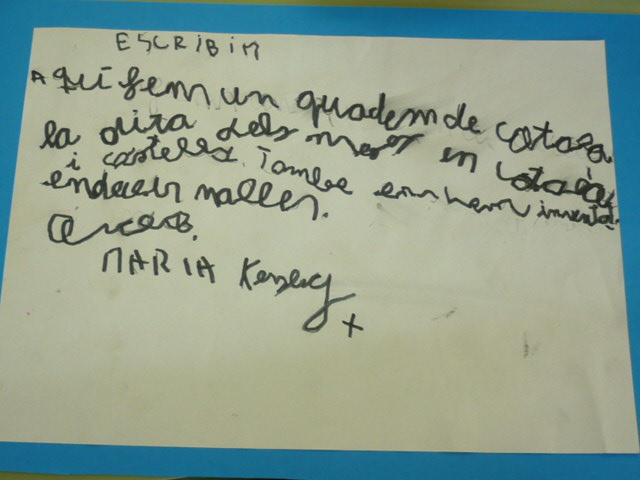 ESCRIBIM
Aquí fem un quadern de català
la dita dels mesos en català
i castellà. Tambe ens hem inventat
endevinalles.
MARIA